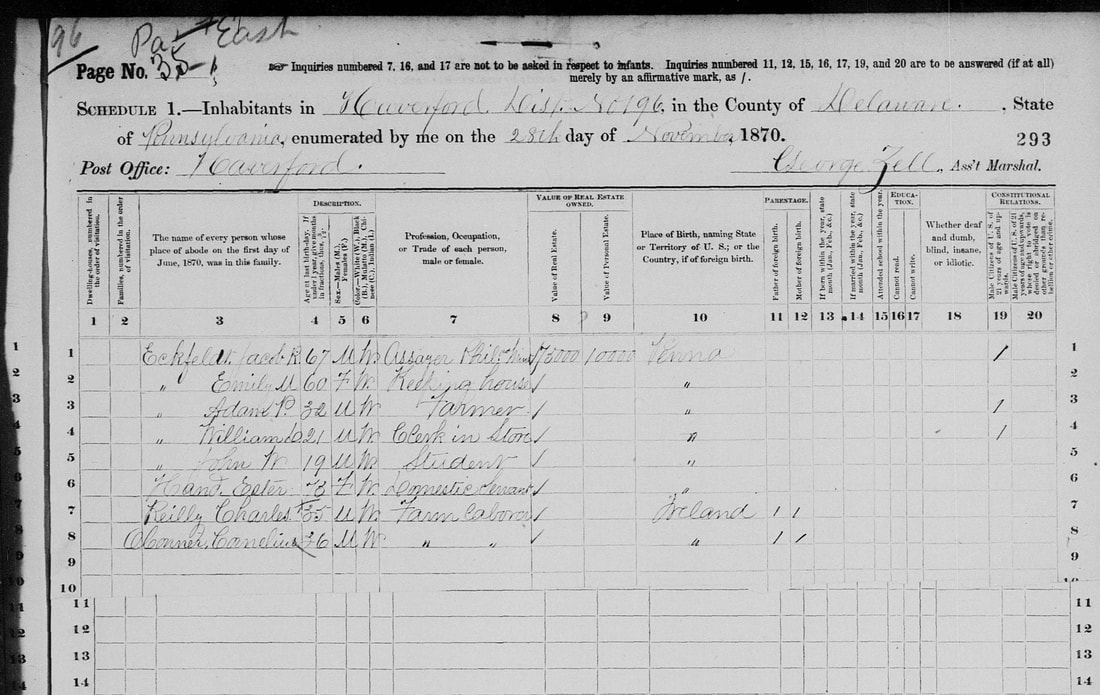 96
Pa East
Page No. 35
Inquiries numbered 7, 16, and 17 are not to be asked in respect to infants. Inquiries numbered 11, 12, 15, 16, 17, 19, and 20 are to be answered (if at all)
merely by an affirmative mark, as /.
SCHEDULE 1.—Inhabitants in Haverford Dist. No 196, in the County of Delaware, State
of Pennsylvania, enumerated by me on the 28th day of November 1870.
293
Post Office: Haverford.
George Zell, Ass't Marshal.
DESCRIPTION. VALUE OF REAL ESTATE OWNED. PARENTAGE. EDUCATION. CONSTITUTIONAL RELATIONS.
Dwelling-houses, numbered in the order of visitation.
Families, numbered in the order of visitation.
The name of every person whose place of abode on the first day of June, 1870, was in this family.
Age at last birth-day. If under 1 year, give months in fractions, thus, 3/12.
Sex.—Males (M.), Females (F.).
Color.—White (W.), Black (B.), Mulatto (M.), Chinese (C.), Indian (I.)
Profession, Occupation, or Trade of each person, male or female.
Value of Real Estate.
Value of Personal Estate.
Place of Birth, naming State or Territory of U. S.; or the Country, if of foreign birth.
Father of foreign birth.
Mother of foreign birth.
If born within the year, state month (Jan., Feb., &c.)
If married within the year, state month (Jan., Feb., &c.)
Attended school within the year.
Cannot read.
Cannot write.
Whether deaf and dumb, blind, insane, or idiotic.
Male Citizens of U. S. of 21 years of age and upwards.
Male Citizens of U. S. of 21 years of age and upwards, where right to vote is denied or abridged on other grounds than rebellion or other crime.
1 2 3 4 5 6 7 8 9 10 11 12 13 14 15 16 17 18 19 20
1 1 Eckfeldt Jacob R 67 M W Assayer Phil 75000 10000 Penna / 1
2 2 " Emily U 60 F W Keeping house / " 2
3 3 " Adam P. 32 M W Farmer / " / 3
4 4 " William 21 M W Clerk in Store / " / 4
5 5 " John W 19 M W Student / " 5
6 6 Hand, Ester 73 F W Domestic Servant / " 6
7 7 Reilly Charles 35 M W Farm Laborer / Ireland / / 7
8 8 O Conner, Cornelius 36 M W " " / " / / 8
9 9 9
10 10
11 11 11
12 12 12
13 13 13
14 14 14